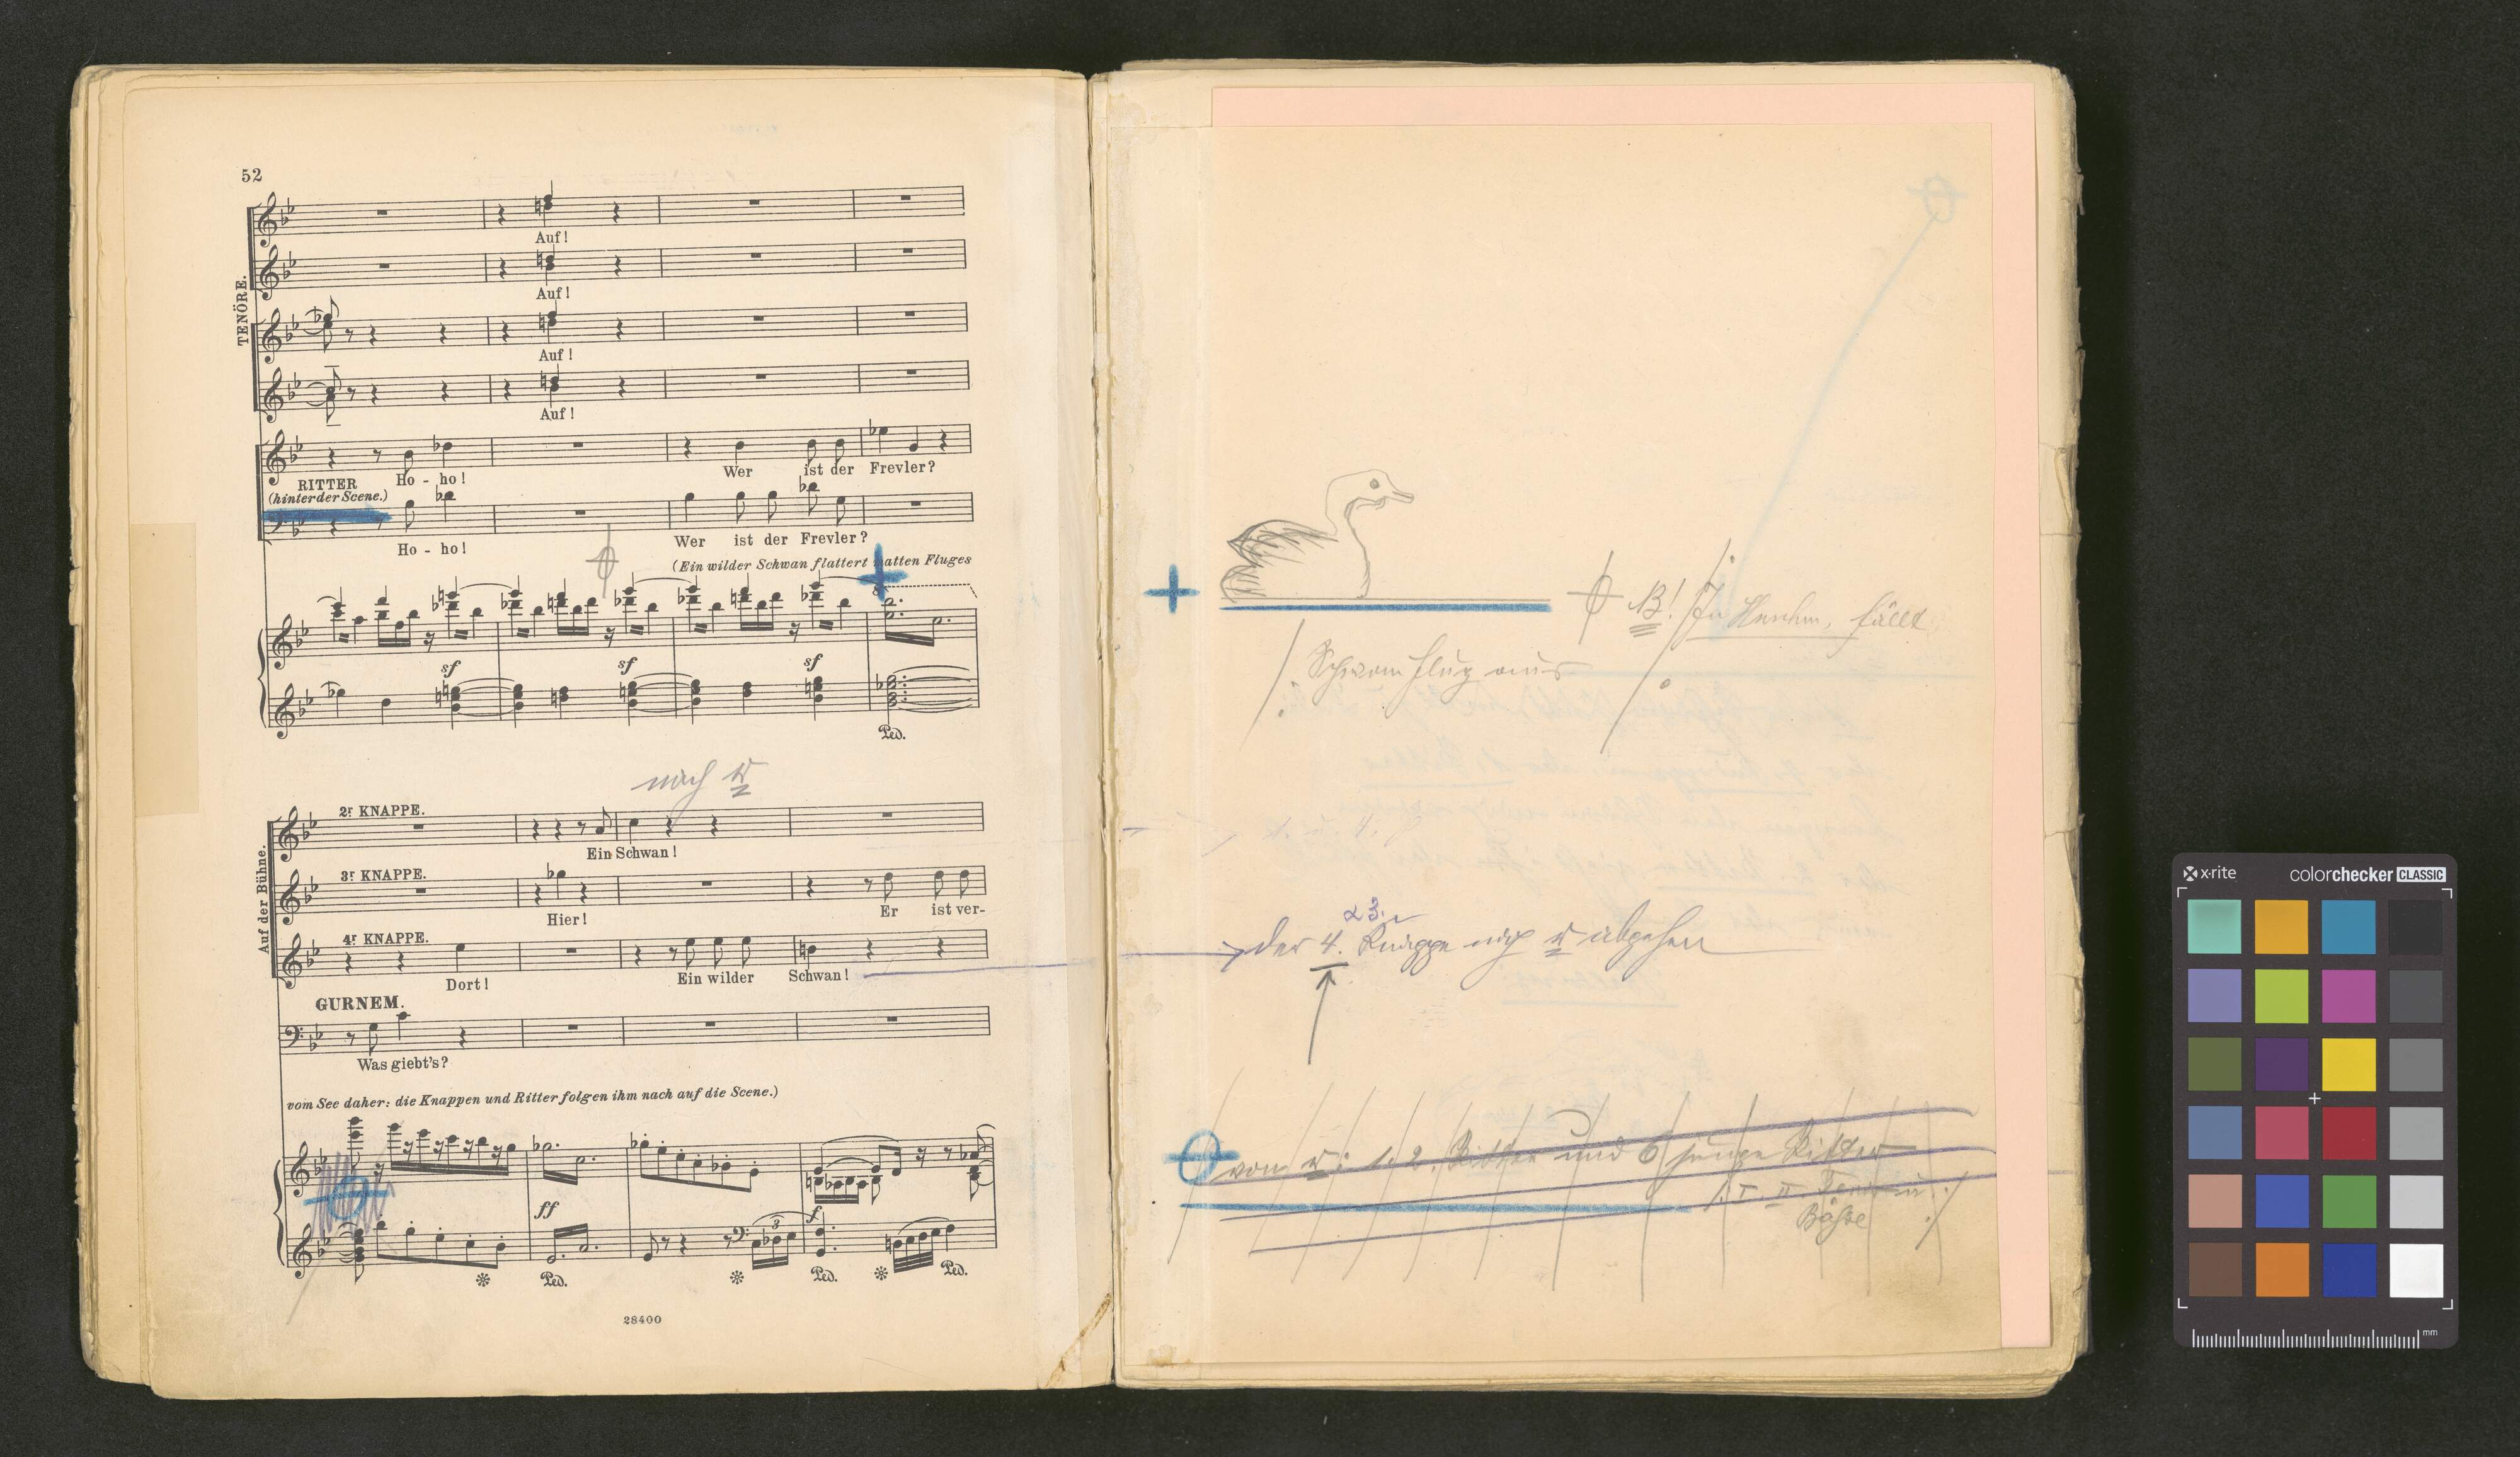 52
TENÖRE.
Auf!
Auf!
Auf!
Auf!
Ho - ho!
Wer ist der Frevler?
RITTER
(hinter der Scene.)
Ho - ho!
Wer ist der Frevler?
(Ein wilder Schwan flattert matten Fluges
sf sf sf
Ped.
nach
Auf der Bühne.
2r KNAPPE.
Ein Schwan!
3r KNAPPE.
Hier!
Er ist ver-
4r KNAPPE.
Dort!
Ein wilder Schwan!
GURNEM.
Was giebt's?
vom See daher: die Knappen und Ritter folgen ihm nach auf die Scene.)
ff
3
f
Ped. Ped. Ped.
28400
NB! fällt
Schwanflug aus
3.
der 4. Knappe abgehen
von 1. 2. Ritter und 6 junge Ritter
I. II. Tenor u.
Bässe
x-rite
colorchecker CLASSIC
mm